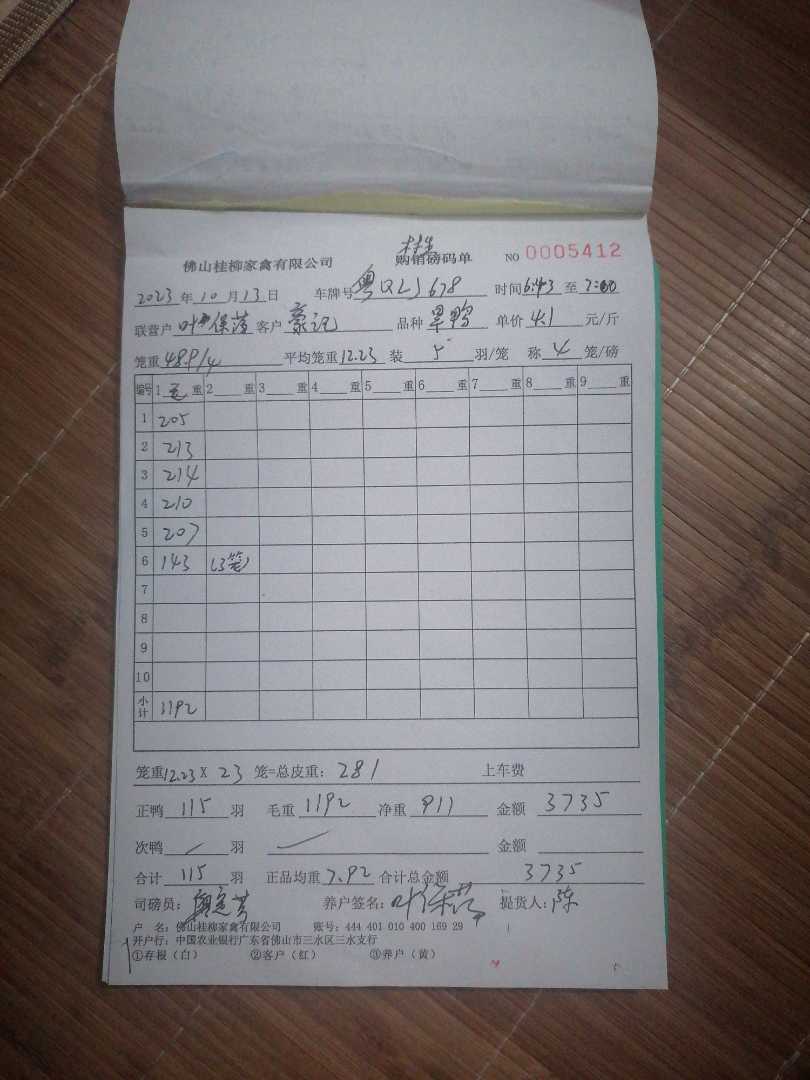 佛山桂柳家禽有限公司 购销磅码单 NO 0005412
2023年10月13日 车牌号 粤QLJ678 时间6:43至7:00
联营户 叶保 客户 豪记 品种 旱鸭 单价 4.1 元/斤
笼重 489/4 平均笼重12.23 装 5 羽/笼 称 4 笼/磅
编号 1 毛 重 2 重 3 重 4 重 5 重 6 重 7 重 8 重 9 重
1 205
2 213
3 214
4 210
5 207
6 143 (3笼)
7
8
9
10
小计 1192
笼重12.23 X 23 笼=总皮重: 281 上车费
正鸭 115 羽 毛重 1192 净重 911 金额 3735
次鸭 羽 金额
合计 115 羽 正品均重 7.92 合计总金额 3735
司磅员: 养户签名: 叶保 提货人: 陈
户 名: 佛山桂柳家禽有限公司 账号: 444 401 010 400 169 29
开户行: 中国农业银行广东省佛山市三水区三水支行
①存根(白) ②客户(红) ③养户(黄)